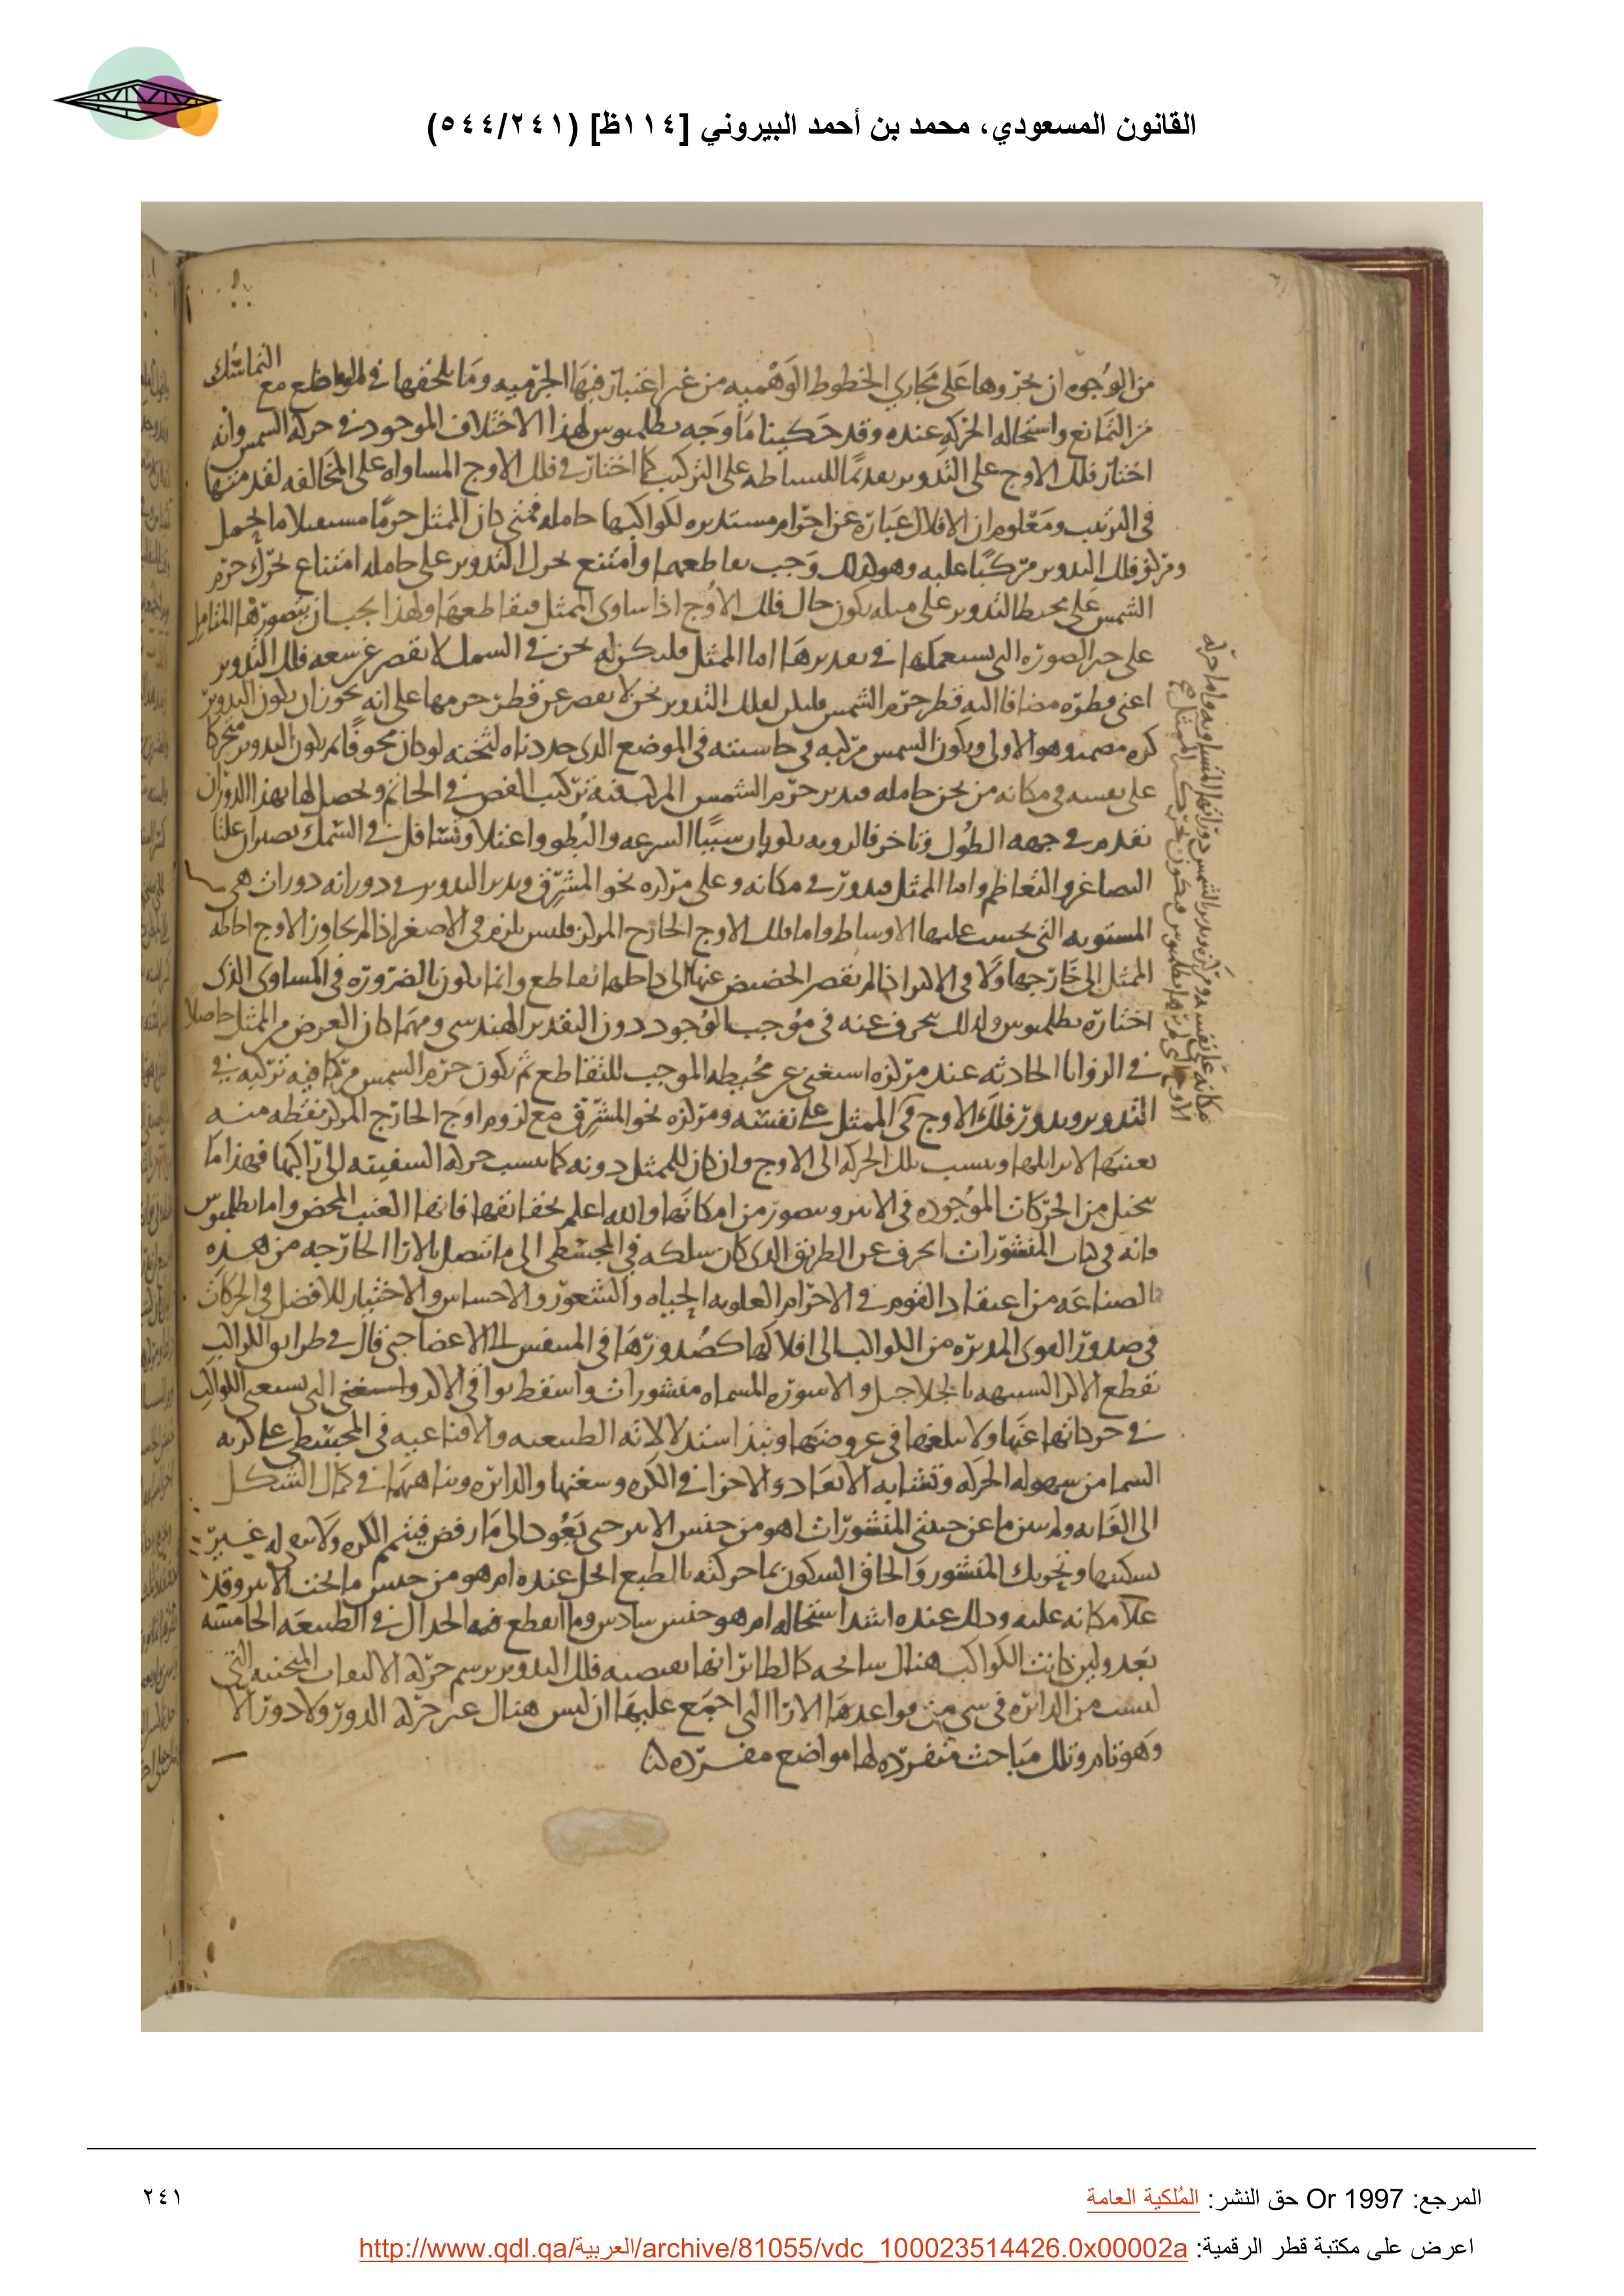 القانون المسعودي، محمد بن أحمد البيروني [١١٤ظ] (٥٤٤/٢٤١)
من الوجوه ان يجروها على مجاري الخطوط الوهميه من غير اعتبار فيها الجرميه وما يلحقها في المواضع مع التماسك
من التمانع واستحاله الحركه عنده وقد حكينا ما وجه بطلميوس لهذا الاختلاف الموجود في حركه الشمس وانه
اختار فلك الاوج على التدوير تقديما للبساطه على التركيب كما اختار في فلك الاوج المساواه على المخالفه لتقدمتها
في الترتيب ومعلوم ان الافلاك عباره عن اجرام مستديره لكواكبها حامله فمتى كان الممثل جرما مستقبلا ما يحمل
ومركز فلك التدوير مركبا عليه وهو كذلك وجب تقاطعهما وامتنع تحرك التدوير على حامله امتناع تحرك جرم
الشمس على محيط التدوير على مثله يكون حال فلك الاوج اذا ساوى الممثل فيقاطعها ولهذا يجب ان يتصورها المتامل
على الصوره التي نستعملها في تقديرها اما الممثل فليكن له ثخن في السمك لا يقصر عن سعه فلك التدوير
اعني قطره مضافا اليه قطر جرم الشمس وليكن لفلك التدوير ثخن لا يقصر عن قطر جرمها على انه يجوز ان يكون التدوير
كره مصمته وهو الاولى ويكون الشمس مركبه في حاشيته في الموضع الذي حددناه لثخنه لو كان مجوفا ثم يكون التدوير متحركا
على نفسه في مكانه من ثخن حامله فيدير جرم الشمس المركب فيه تركيب الفص في الخاتم ويحصل لها بهذا الدوران
تقدم في جهه الطول وتاخر فالرويه يكونان سببا السرعه والبطو واعتلا وتسافل في السمك يصيران علتا
التصاغر والتعاظم واما الممثل فيدور في مكانه وعلى مركزه نحو المشرق ويدير التدوير في دورانه دورات هي
المستويه التي يحسب عليها الاوساط واما فلك الاوج الخارج المركز فليس يلزم في الاصغر اذا لم يجاوز الاوج احاطه
الممثل الى خارجها ولا في الاكبر اذا لم يقصر الحضيض عنها الى داخلها تقاطع وانما يكون بالضروره في المساوى الذى
اختاره بطلميوس ولذلك ينحرف عنه في موجب الوجود دون التقدير الهندسي ومهما كان الغرض من الممثل حاصلا
في الزوايا الحادثه عند مركزه استغنى عن محيطه الموجب للتقاطع ثم يكون جرم الشمس مركبا فيه تركيبه في
التدوير ويدور فلك الاوج في الممثل على نفسه ومركزه نحو المشرق مع لزوم اوج الخارج المركز نقطه منه
بعينها لا يزايلها وينسب تلك الحركه الى الاوج وان كان للممثل دونه كما ينسب حركه السفينه الى راكبها فهذا ما
يتخيل من الحركات الموجوده في الاثير ويتصور من امكانها والله اعلم بحقائقها فانها الغيب المحض واما بطلميوس
فانه في كتاب المنشورات انحرف عن الطريق الذي كان سلكه في المجسطي الى ما يتصل بالارا الخارجه من هذه
الصناعه من اعتقاد القوم في الاجرام العلويه الحياه والشعور والاحساس والاختيار للافضل في الحركات
في صدور القوى المديره من الكواكب الى افلاكها كصدورها في المتنفس الى الاعضا حتى قال في طرايق الكواكب
بقطع الاكر الشبيهه بالخلاجل والاسوره المسماه منشورات واسقط بواقي الاكر واستغنى التي تسعى الكواكب
في حركاتها عنها ولا يبلغها في عروضها ونبذ استدلالاته الطبيعيه والاقناعيه في المجسطي على كريه
السما من سهوله الحركه وتشابه الابعاد والاجزا في الكره وسعتها والدائره وتناهيهما في كمال الشكل
الى الغايه ولم يبن ما عن جنبتي المنشورات اهو من جنس الاثير حتى يعود الى ما رفض فيتم الكره ولا يبقى له غير
تسكينها وتحريك المنشور والحاق السكون بما حركته بالطبع اخل عنده ام هو من جنس ما تحت الاثير وقد
علا مكانه عليه وذلك عنده اشد استحاله ام هو جنس سادس وما انقطع فيه الجدال في الطبيعه الخامسه
بعد ولئن كانت الكواكب هناك سابحه كالطائر انها بعصبه فلك التدوير يرسم حركه الالتفات المنحنيه التي
ليست من الدائره في شي من قواعدها الارا التي اجتمع عليها ان ليس هناك غير حركه الدور ولا دور الا
وهو تام وتلك مباحث منفرده لها مواضع مفرده
المرجع: Or 1997 حق النشر: المُلكية العامة
٢٤١
اعرض على مكتبة قطر الرقمية: http://www.qdl.qa/العربية/archive/81055/vdc_100023514426.0x00002a